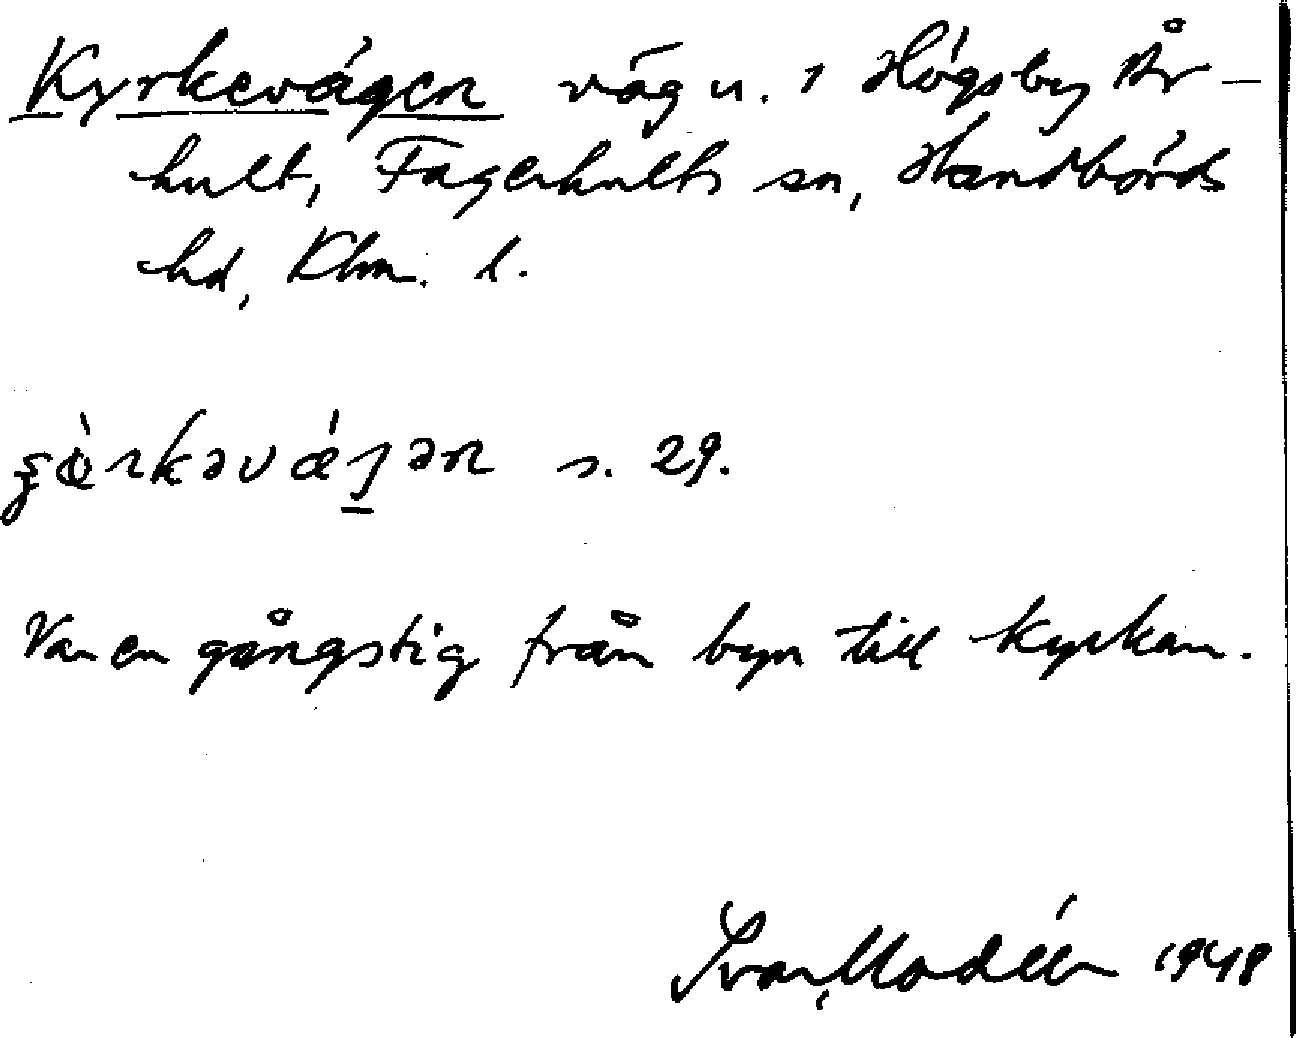 Kyrkevägen väg u. i Högsby År-
hult, Fagerhults sn, Handbörds
hd, Klm. l.
s. 29.
Var en gångstig från byn till kyrkan.
Ivar Modéer 1948